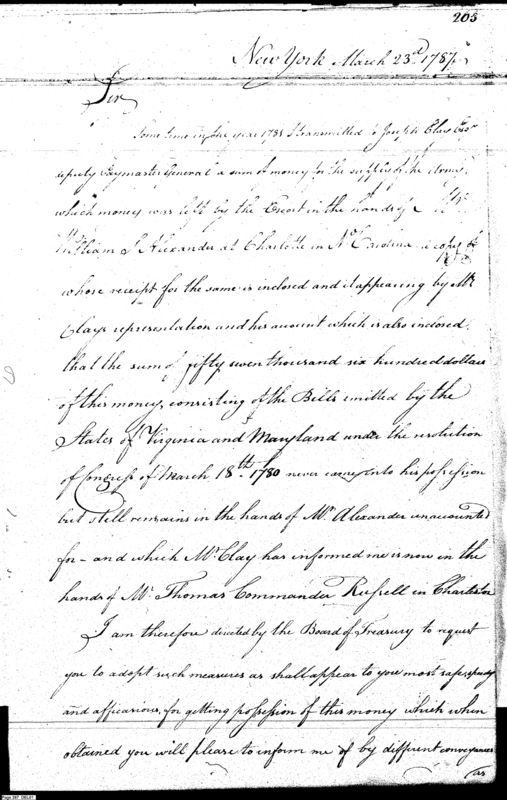 203
New York March 23d 1787
Sir
Some time in the year 1781 I transmitted to Joseph Clay Esqr
deputy Paymaster General a sum of money for the supplies of the Army,
which money was left by the Escort in the hands of Mr
William S Alexander at Charlotte in No Carolina a copy of
whose receipt for the same is inclosed and it appearing by Mr
Clays representation and his account which is also inclosed,
that the sum of fifty seven thousand six hundred dollars
of this money, consisting of the Bills emitted by the
States of Virginia and Maryland under the resolution
of Congress of March 18th 1780 never came into his possession
but still remains in the hands of Mr Alexander unaccounted
for - and which Mr Clay has informed me is now in the
hands of Mr Thomas Commander Russell in Charleston
I am therefore directed by the Board of Treasury to request
you to adopt such measures as shall appear to you most safe, speedy
and efficacious, for getting possession of this money which when
obtained you will please to inform me of by different conveyances
as